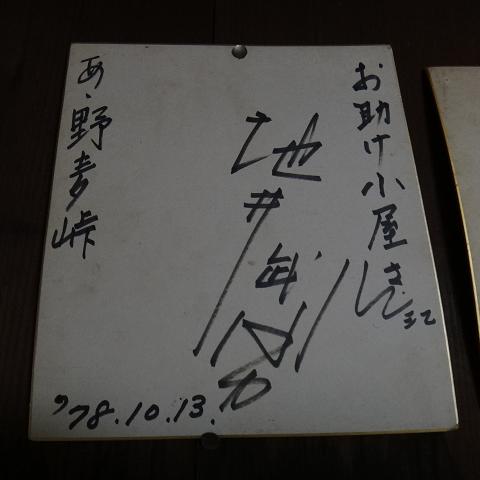 お助け小屋さん江
地井武男
あゝ野麦峠
'78.10.13.